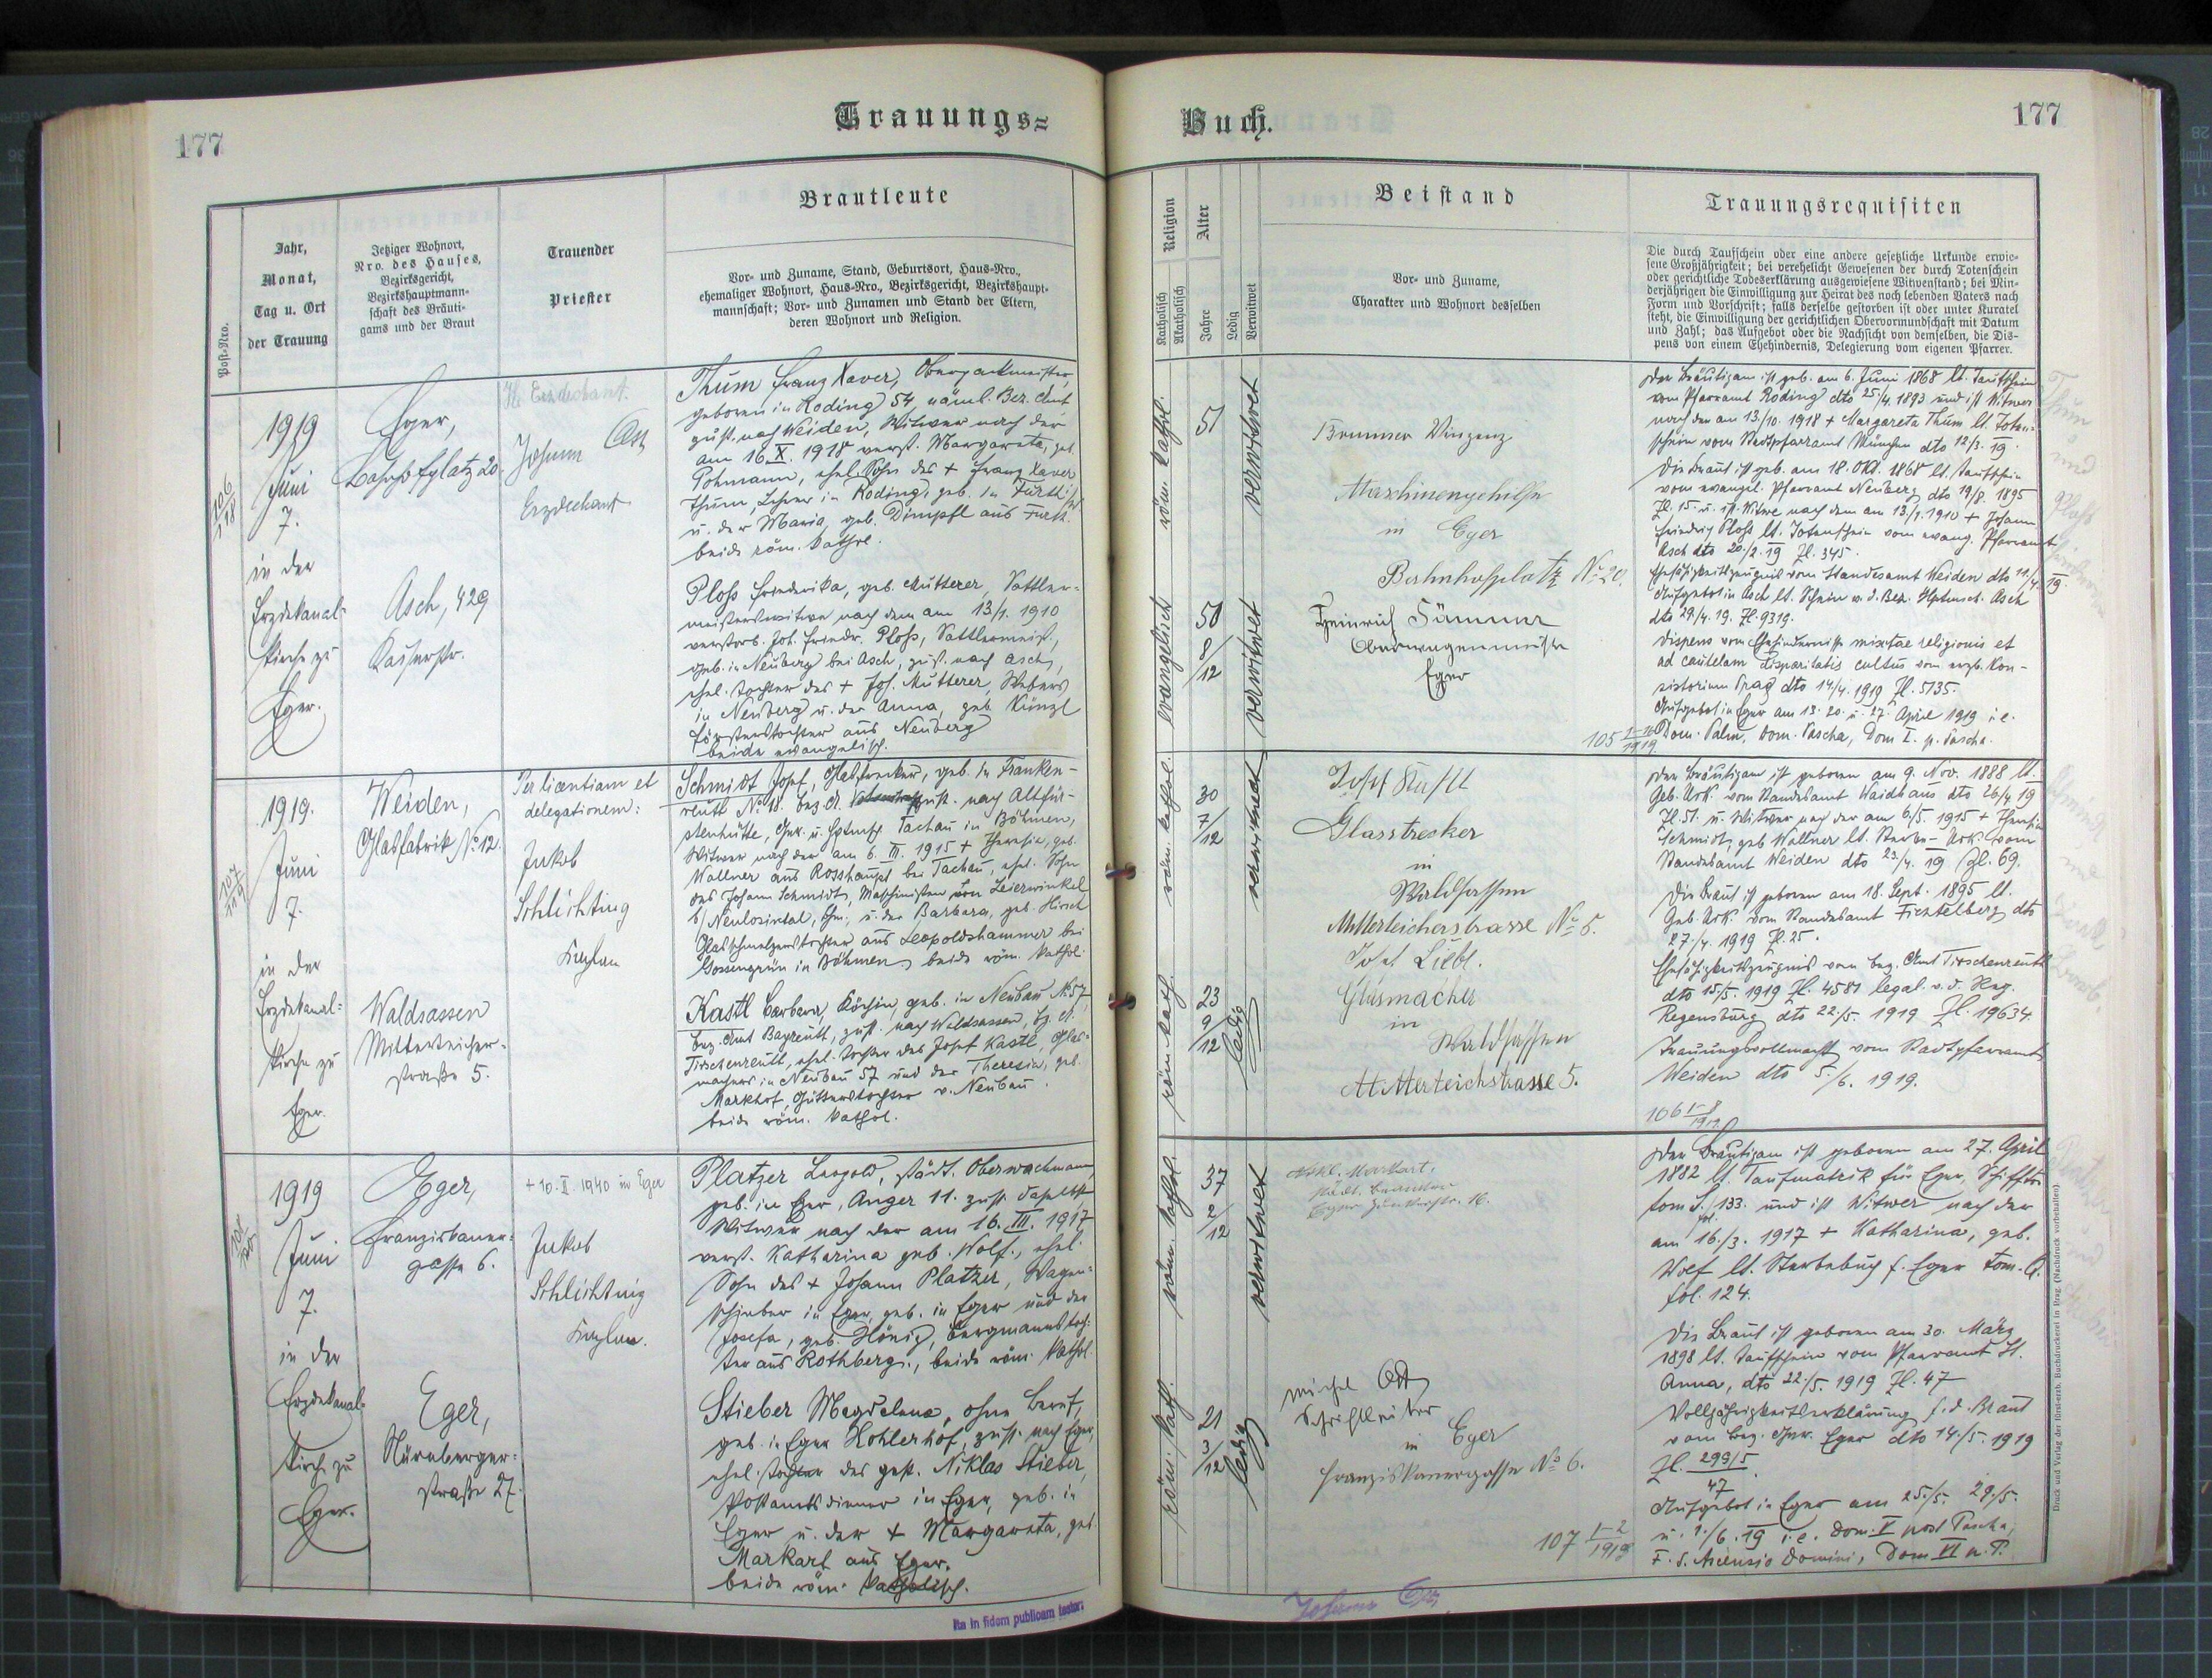 177
Trauungs=
Post-Nro.
Jahr,
Monat,
Tag u. Ort
der Trauung
Jetziger Wohnort,
Nro. des Hauses,
Bezirksgericht,
Bezirkshauptmann-
schaft des Bräuti-
gams und der Braut
Trauender
Priester
Brautleute
Vor- und Zuname, Stand, Geburtsort, Haus-Nro.,
ehemaliger Wohnort, Haus-Nro., Bezirksgericht, Bezirkshaupt-
mannschaft; Vor- und Zunamen und Stand der Eltern,
deren Wohnort und Religion.
1919
Juni
7.
in der
Erzdekanal-
kirche zu
Eger.
Eger,
Bahnhofplatz 20.
Asch, 429
Kaiserstr.
Johann
Erzdechant
Thum Franz Xaver, Oberpackmeister,
geboren in Roding 54 nämL. Bez. Amt
zust. nach Weiden, Witwer nach der
am 16. X. 1918 verst. Margareta, geb.
Pohmann, ehel. Sohn des + Franz Xaver
Thum, Lehrer in Roding, geb. in
u. der Maria, geb. Dimpfl aus Furth.
beide röm. kathol.
Ploss Friederika, geb. Mutterer, Sattler-
meisterswitwe nach dem am 13/1. 1910
verstorb. Joh. Friedr. Ploss, Sattlermeist.,
geb. in Neuberg bei Asch, zust. nach Asch,
ehel. Tochter des + Joh. Mutterer, Webers
in Neuberg u. der Anna, geb. Künzl
Försterstochter aus Neuberg
beide evangelisch.
1919.
Juni
7.
in der
Erzdekanal-
kirche zu
Eger.
Weiden,
Glasfabrik No 12.
Waldsassen
Mitterteicher-
straße 5.
Per licentiam et
delegationem:
Jakob
Schlichting
Kaplan
Schmidt Josef, Glasstrecker, geb. in Franken-
reuth No 18. Bez. A. zust. nach Altfür-
stenhütte, Ger. u. Hptmsch. Tachau in Böhmen,
Witwer nach der am 6. III. 1915 + Theresia, geb.
Wallner aus Rosshaupt bei Tachau, ehel. Sohn
des Johann Schmidt, Maschinisten von Leierwinkel
b/ Neulosimtal, Bhm., u. der Barbara, geb. Hirsch
Glasschmelzerstochter aus Leopoldshammer bei
Gossengrün in Böhmen, beide röm. kathol.
Kastl Barbara, Köchin, geb. in Neubau No 57,
Bez. Amt Bayreuth, zust. nach Waldsassen, Bz. A.
Tirschenreuth, ehel. Tochter des Josef Kastl, Glas-
machers in Neubau 57 und der Theresia, geb.
Markhof, Gütlerstochter v. Neubau.
beide röm. kathol.
1919
Juni
7.
in der
Erzdekanal-
kirche zu
Eger.
Eger,
Franziskaner-
gasse 6.
Eger,
Nürnberger-
straße 27.
+ 10. II. 1940 in Eger
Jakob
Schlichting
Kaplan.
Platzer Leopold, städt. Oberwachmann,
geb. in Eger, Anger 11. zust. daselbst
Witwer nach der am 16. III. 1917
verst. Katharina geb. Wolf., ehel.
Sohn des + Johann Platzer, Wagen-
schieber in Eger, geb. in Eger und der
Josefa, geb. Hönig, Bergmannstoch-
ter aus Rothberg., beide röm. kathol.
Stieber Magdalena, ohne Beruf,
geb. in Eger Kohlerhof, zust. nach Eger,
ehel. Tochter des gest. Niklas Stieber,
Postamtsdiener in Eger, geb. in
Eger u. der + Margareta, geb.
Markart aus Eger.
beide röm. katholisch.
Ita in fidem publicam testor:
Buch.
177
Religion
Katholisch
Akatholisch
Alter
Jahre
Ledig
Verwitwet
Beistand
Vor- und Zuname,
Charakter und Wohnort desselben
Trauungsrequisiten
Die durch Taufschein oder eine andere gesetzliche Urkunde erwie-
sene Großjährigkeit; bei verehelicht Gewesenen der durch Totenschein
oder gerichtliche Todeserklärung ausgewiesene Witwenstand; bei Min-
derjährigen die Einwilligung zur Heirat des noch lebenden Vaters nach
Form und Vorschrift; falls derselbe gestorben ist oder unter Kuratel
steht, die Einwilligung der gerichtlichen Obervormundschaft mit Datum
und Zahl; das Aufgebot oder die Nachsicht von demselben, die Dis-
pens von einem Ehehindernis, Delegierung vom eigenen Pfarrer.
röm. kathol.
51
verwitwet
Brunner Vinzenz
Maschinengehilfe
in Eger
Bahnhofplatz No 20.
evangelisch
50
8/12
verwitwet
Heinrich Sümmer
Oberwagenmeister
Eger
Der Bräutigam ist geb. am 6. Juni 1868 lt. Taufschein
vom Pfarramt Roding dto 25/4. 1893 und ist Witwer
nach der am 13/10. 1918 + Margareta Thum lt. Toten-
schein vom Stadtpfarramt München dto 12/3. 19.
Die Braut ist geb. am 18. Okt. 1868 lt. Taufschein
vom evangel. Pfarramt Neuberg dto 19/8. 1895
Zl. 15. u. ist Witwe nach dem am 13/1. 1910 + Johann
Friedrich Ploss lt. Totenschein vom evang. Pfarramt
Asch dto 20./2. 19 Zl. 345.
Ehefähigkeitszeugnis vom Standesamt Weiden dto 11./4. 19.
Aufgebot in Asch lt. Schein v. d. Bez. Hptmsch. Asch
dto 29/4. 19. Zl. 9319.
Dispens vom Ehehindernisse mixtae religionis et
ad cautelam disparitatis cultus vom erzb. Kon-
sistorium Prag dto 14/4. 1919 Zl. 5135.
Aufgebot in Eger am 13. 20. u. 27. April 1919 i. e.
Dom. Palm, Dom. Pascha, Dom I. p. Pascha.
röm. kathol.
30
7/12
verwitwet
Glasstrecker
in
Waldsassen
Mitterteicherstrasse No 5.
röm. kath.
23
9/12
ledig
Josef Liebl.
Glasmacher
in
Waldsassen
Mitterteichstrasse 5.
Der Bräutigam ist geboren am 9. Nov. 1888 lt.
Geb. Urk. vom Standesamt Waidhaus dto 26/4 19
Zl. 51. u. Witwer nach der am 6/5. 1915 + Theresia
Schmidt, geb Wallner lt. Sterbe-Urk. vom
Standesamt Weiden dto 23/4. 19 Zl. 69.
Die Braut ist geboren am 18. Sept. 1895 lt.
Geb. Urk. vom Standesamt Fichtelberg dto
27./4. 1919 Zl. 25.
Ehefähigkeitszeugnis vom Bez. Amt Tirschenreuth
dto 15./5. 1919 Zl. 4581 legal. v. d. Reg.
Regensburg dto 22/5. 1919 Zl. 19634.
Trauungsvollmacht vom Stadtpfarramt
Weiden dto 5./6. 1919.
röm. kathol.
37
2/12
verwitwet
Markart,
städt. Beamter
röm. kath.
21
3/12
ledig
Michel Ott
Schriftleiter
in Eger
Franziskanergasse No 6.
Der Bräutigam ist geboren am 27. April
1882 lt. Taufmatrik für Eger, Schifftor
tom S./fol. 133. und ist Witwer nach der
am 16./3. 1917 + Katharina, geb.
Wolf lt. Sterbebuch f. Eger tom. Q.
fol. 124.
Die Braut ist geboren am 30. März
1898 lt. Taufschein vom Pfarramt St.
Anna, dto 22./5. 1919 Zl. 47
Volljährigkeitserklärung f. d. Braut
vom Bez. Ger. Eger dto 14./5. 1919
Zl. 299/5
47
Aufgebot in Eger am 25./5. 29./5.
u. 1./6. 19 i. e. Dom. V post Pascha,
F. S. Ascensio Domini, Dom VI p. P.
Druck und Verlag der fürsterzb. Buchdruckerei in Prag. (Nachdruck vorbehalten).